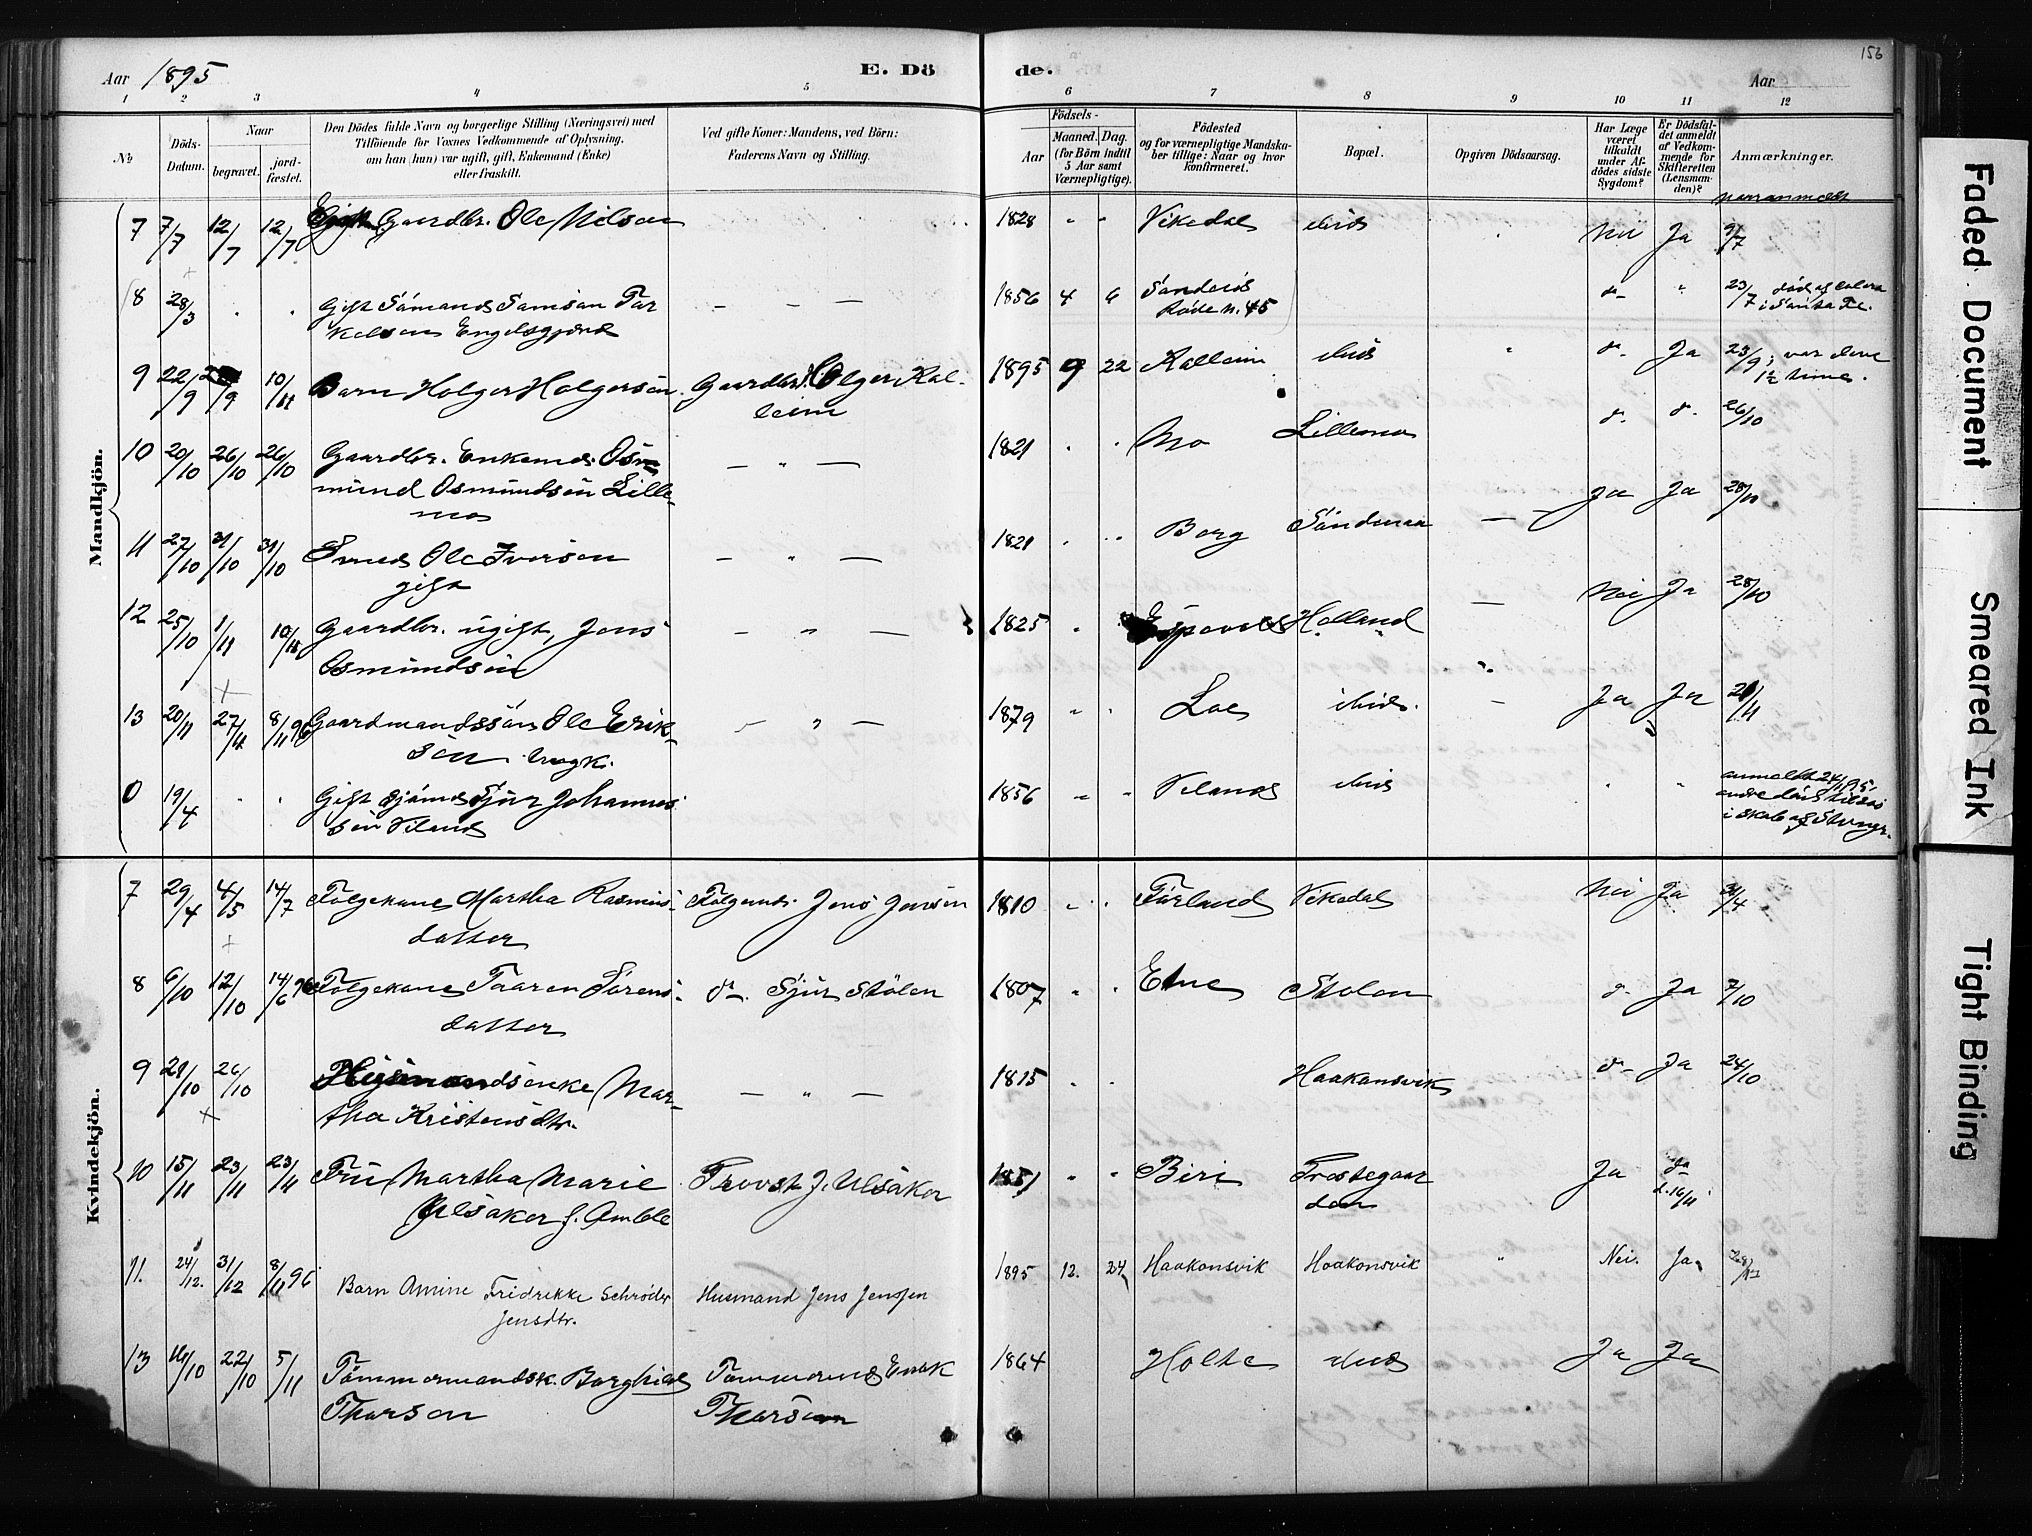 Aar 1895
E. Dö
de.
Aar
156
1 2 3 4 5 6 7 8 9 10 11 12
No
Döds-
Datum.
Naar
begravet.
jord-
fæstet.
Den Dödes fulde Navn og borgerlige Stilling (Næringsvei) med
Tilföiende for Voxnes Vedkommende af Oplysning,
om han (hun) var ugift, gift, Enkemand (Enke)
eller fraskilt.
Ved gifte Koner: Mandens, ved Börn:
Faderens Navn og Stilling.
Födsels-
Aar
Maaned. Dag.
(for Börn indtil
5 Aar samt
Værnepligtige).
Födested
og for værnepligtige Mandska-
ber tillige: Naar og hvor
konfirmeret.
Bopæl.
Opgiven Dödsaarsag.
Har Læge
været
tilkaldt
under Af-
dödes sidste
Sygdom?
Er Dödsfal-
det anmeldt
af Vedkom-
mende for
Skifteretten
(Lensman-
den)?
Anmærkninger.
Mandkjön.
7 7/7 12/7 12/7 Gaardbr. Ole Nilsen 1828 " " Vikedal ibid Nei Ja 9/7
8 28/3 Gift Sömand Samson Tor
kelsen Engelsgjerd — — — 1856 4 6 Sandeid
Røde n. 45 do " 23/7 död af colera
i Santa Fe.
9 22/9 10/11 Barn Holger Holgersen Gaardbr. Holger Kal-
leim 1895 9 22 Kalleim ibid " do Ja 23/9; var leve
1½ time.
10 20/10 26/10 26/10 Gaardbr. Enkemd. Os-
mund Osmundsen Lille
moe — " — 1821 Mo Lillemo do do 26/10
11 27/10 31/10 31/10 Smed Ole Iversen
gift — " — 1821 Borg Söndenaa — Ja Ja 28/10
12 25/10 1/11 10/11 Gaardbr. ugift, Jens
Osmundsen — " — 1825 Espeved Hølland — Nei Ja 28/10
13 20/11 27/11 8/11 96 Gaardmandssön Ole Erik-
sen. Ungk. — " — 1879 " Loe ibid. — Ja Ja 21/11
0 19/4 Gift Sjömd Sjur Johannes
sen Viland 1856 " " Viland ibid
Kvindekjön.
7 29/4 4/5 14/7 Folgekone Martha Rasmus-
datter Folgemd. Jens Jensen 1810 " Førland Vikedal Nei Ja 31/4
8 6/10 12/10 14/6 96 Folgekone Taaren Sørens-
datter do Sjur Stölen 1807 " Etne Stølen do Ja 7/10
9 21/10 26/10 Husmandsenke Mar-
tha Kristensdtr. — " — 1815 Haakonsvik do Ja 24/10
10 15/11 23/11 23/11 Fru Martha Marie
Ulsaker f. Amble Provst J. Ulsaker 1851 " " Biri Prestegaar
den Ja do
d. 16/11
11. 24/12. 31/12 8/11 96 Barn Amine Fridrikke Schrøder
Jensdtr. Husmand Jens Jensen 1895 12. 24 Haakonsvik Haakonsvik " Nei. Ja.
13 16/10 22/10 5/11 Tömmermandsk. Borghild
Thorsen Tømmermd Enok
Thorsen 1864 Holte ibid Ja Ja
Faded Document
Smeared Ink
Tight Binding